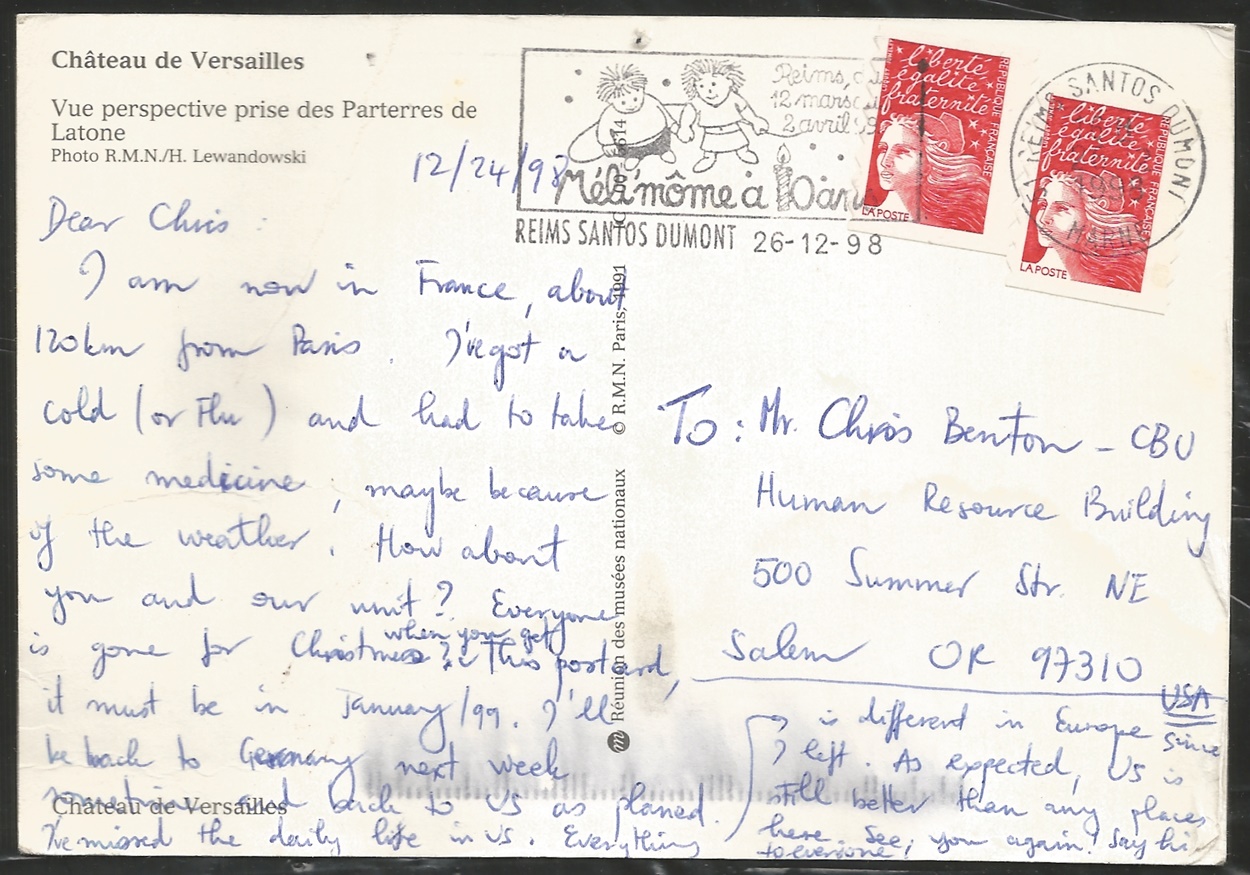 Château de Versailles
Vue perspective prise des Parterres de
Latone
Photo R.M.N./H. Lewandowski
12/24/98
Dear Chris :
I am now in France, about
120km from Paris. I've got a
cold (or Flu) and had to take
some medicine, maybe because
of the weather. How about
you and our unit? Everyone
is gone for Christmas? when you get this postcard,
it must be in January/99. I'll
be back to Germany next week
sometime and back to US as planed.
Château de Versailles
I've missed the daily life in US. Everything
is different in Europe since
I left. As expected, US is
still better than any places
here. See you again! Say hi
to everyone.
m Réunion des musées nationaux © R.M.N. Paris, 1991
Reims, du
12 mars au
2 avril 99
Méli'môme à
REIMS SANTOS DUMONT 26-12-98
liberté
égalité
fraternité
RÉPUBLIQUE FRANÇAISE
LA POSTE
liberté
égalité
fraternité
RÉPUBLIQUE FRANÇAISE
LA POSTE
51 REIMS SANTOS DUMONT
MARNE
To: Mr. Chris Benton - CBU
Human Resource Building
500 Summer Str. NE
Salem OR 97310
USA